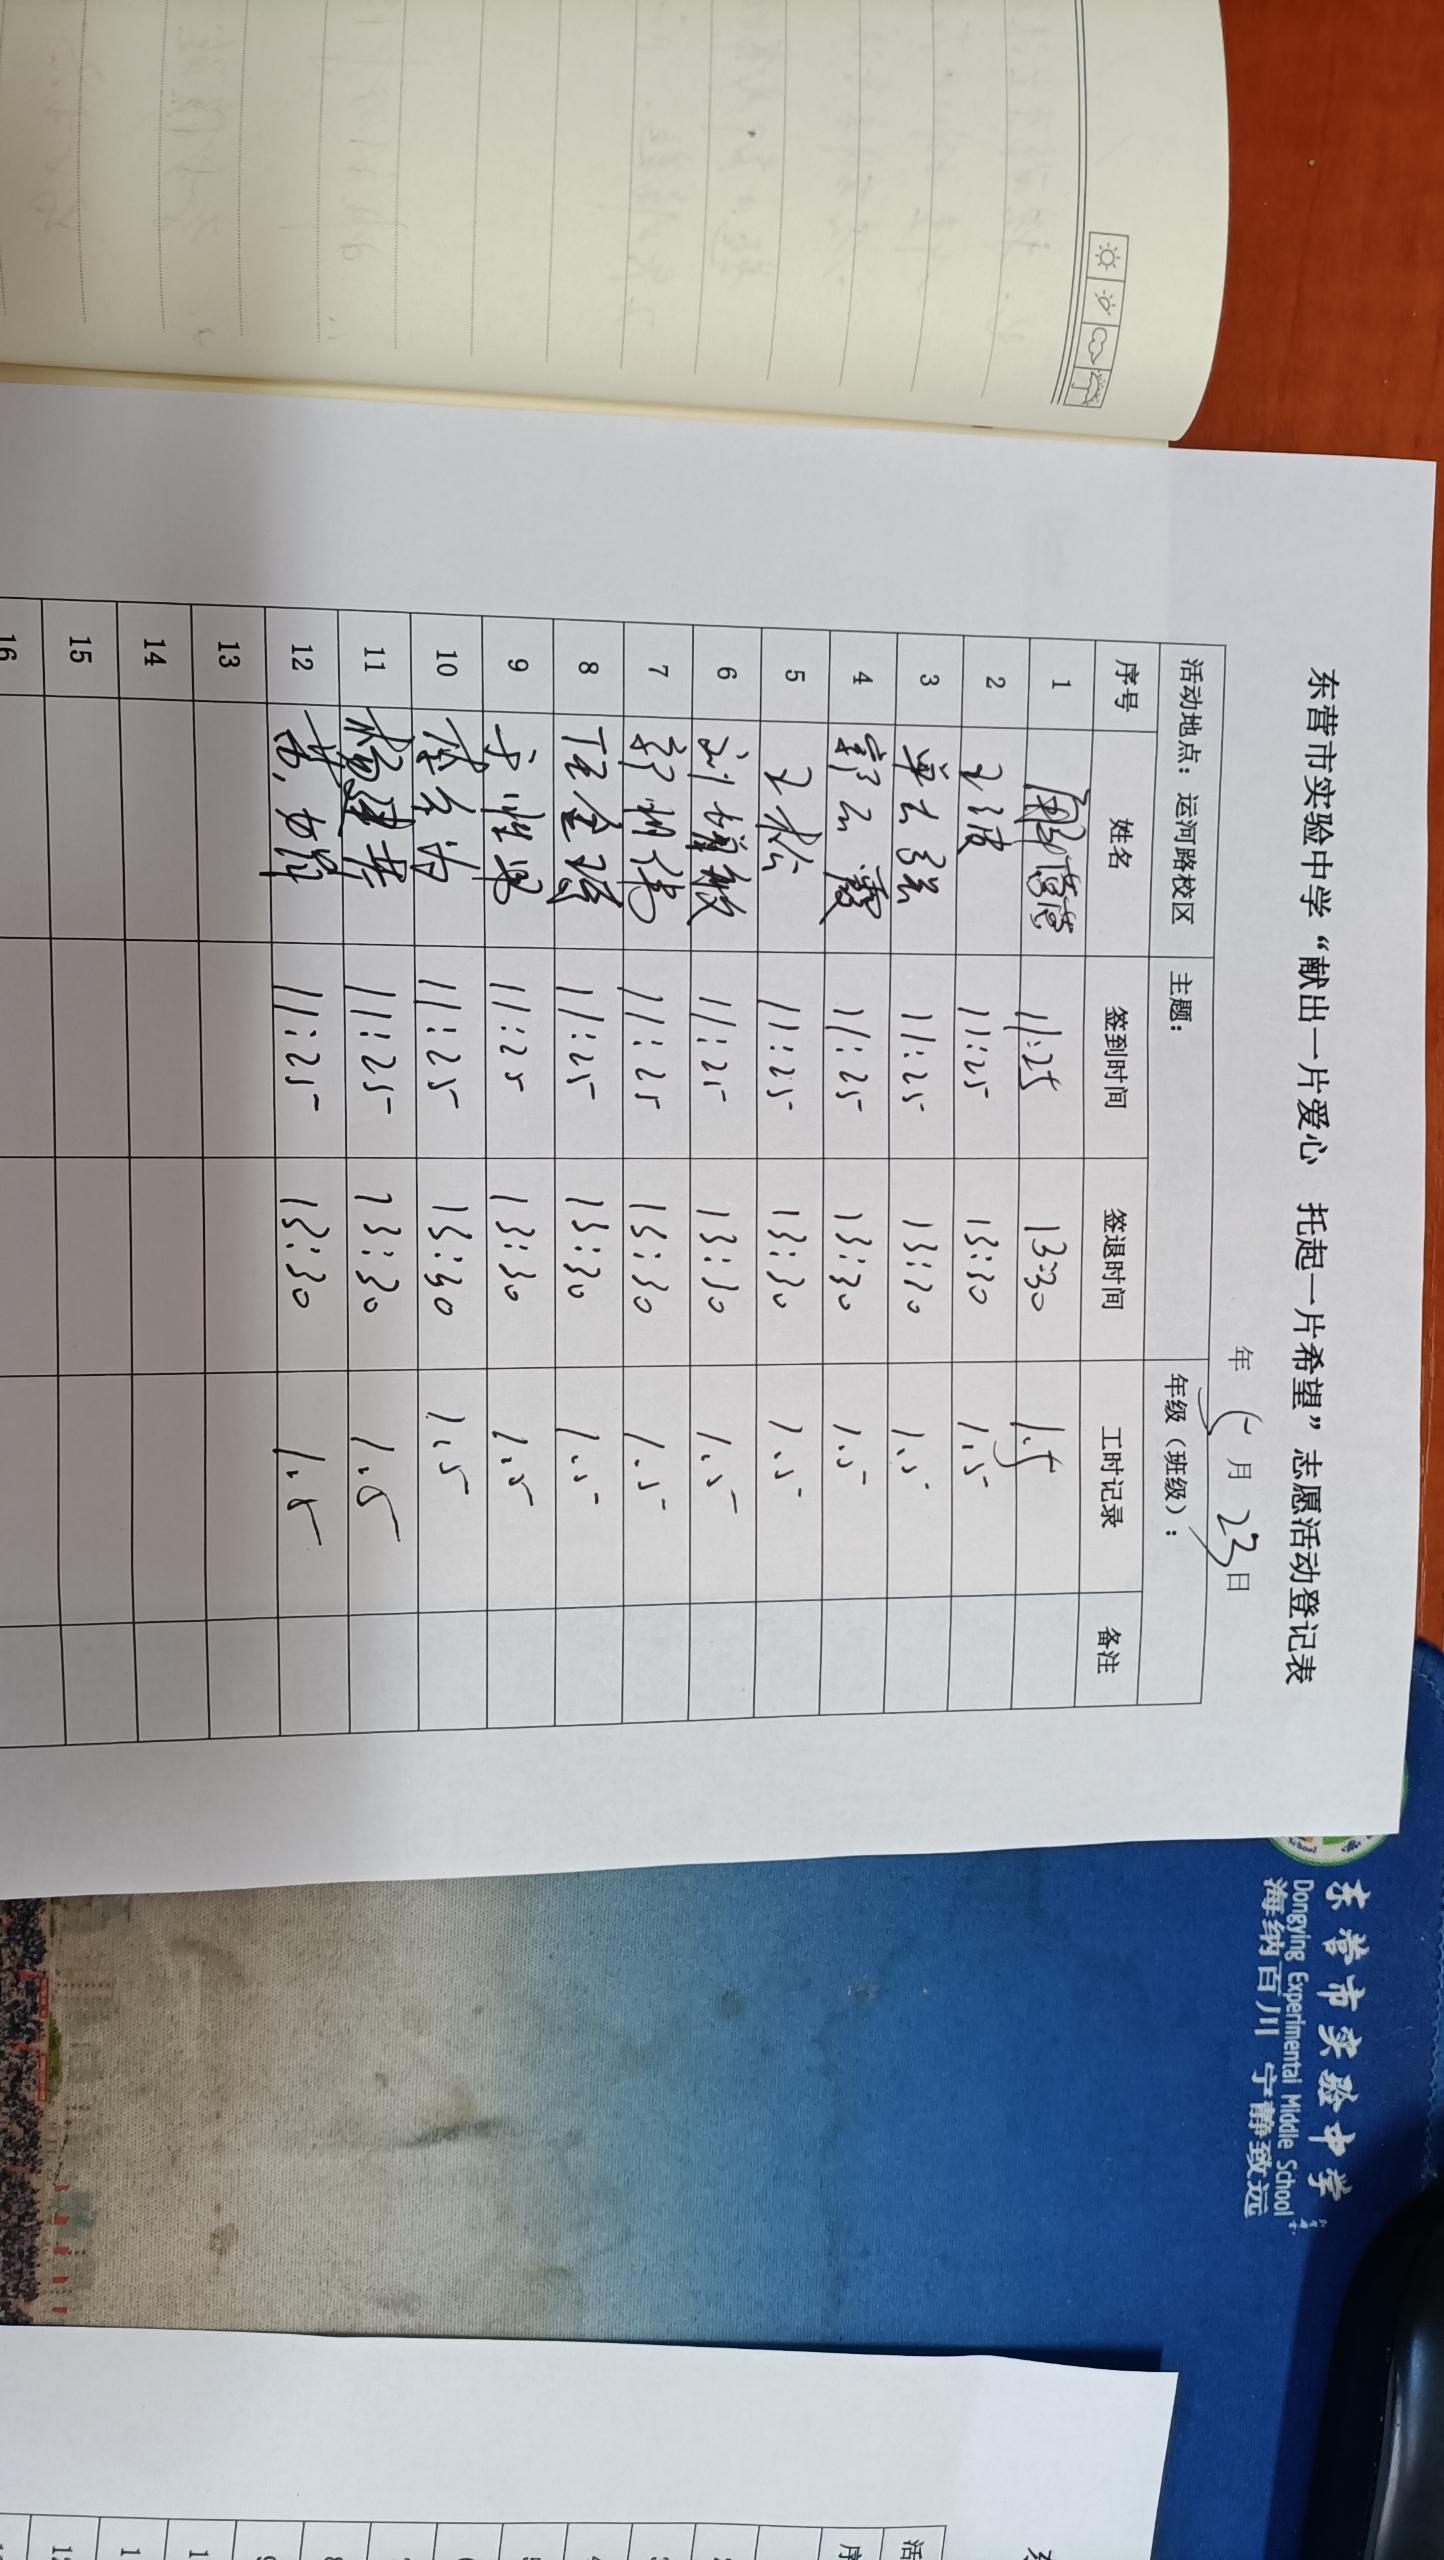 东营市实验中学“献出一片爱心 托起一片希望”志愿活动登记表
年 5月23日
活动地点：运河路校区 主题： 年级（班级）：
序号 姓名 签到时间 签退时间 工时记录 备注
1 11:25 13:30 1.5
2 王波 11:25 13:30 1.5
3 11:25 13:30 1.5
4 郭玉霞 11:25 13:30 1.5
5 王松 11:25 13:30 1.5
6 刘增敏 11:25 13:30 1.5
7 11:25 13:30 1.5
8 任金强 11:25 13:30 1.5
9 11:25 13:30 1.5
10 11:25 13:30 1.5
11 杨建英 11:25 13:30 1.5
12 11:25 13:30 1.5
13
14
15
16
东营市实验中学
Dongying Experimental Middle School
海纳百川 宁静致远